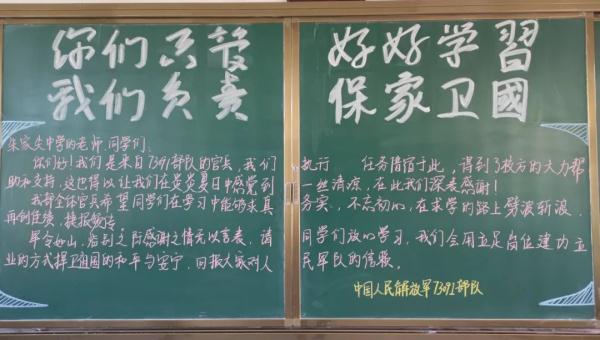 你们只管
我们负责
好好学習
保家卫國
朱家尖中学的老师、同学们：
你们好！我们是来自7391部队的官兵，我们执行 任务借宿于此，得到了校方的大力帮
助和支持，这也得以让我们在炎炎夏日中感觉到一丝清凉，在此我们深表感谢！
我部全体官兵希望同学们在学习中能够求真务实，不忘初心，在求学的路上劈波斩浪，
再创佳绩，捷报频传。
军令如山，临别之际感谢之情无以言表，请同学们放心学习，我们会用立足岗位建功立
业的方式捍卫祖国的和平与安宁，回报大家对人民军队的信赖。
中国人民解放军7391部队